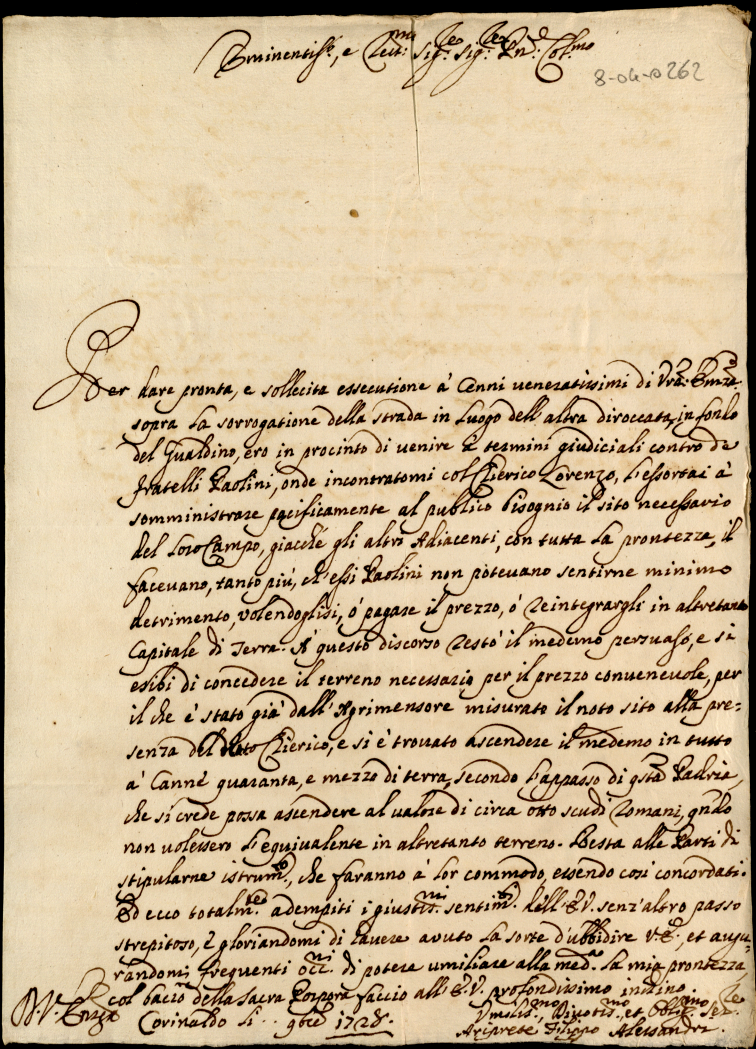 Eminentiss.e, e Rev.mo Sig.re Sig.re Pn.e Col.mo
8-04-0262
Per dare pronta, e sollecita essecutione à Cenni veneratissimi di Vrã Emza
sopra la sorrogatione della strada in luogo dell'altra diroccata in fondo
del Gualdino, ero in procinto di venire à termini giudiciali contro de
fratelli Paolini, onde incontratomi col Chierico Lorenzo, l'essortai à
somministrare pacificamente al publico bisognio il sito necessario
del loro Campo, giacché gli altri Adiacenti, con tutta la prontezza, il
facevano, tanto più, ch'essi Paolini non potevano sentirne minimo
detrimento, volendoglisi, ò pagare il prezzo, ò reintegrargli in altretanto
Capitale di Terra. A' questo discorso restò il medemo persuaso, e si
esibì di concedere il terreno necessario per il prezzo convenevole, per
il che è stato già dall'Agrimensore misurato il noto sito alla pre=
senza del detto Chierico, e si è trovato ascendere il medemo in tutto
à Canne quaranta, e mezzo di terra, secondo l'appasso di gsta Padria,
che si crede possa ascendere al valore di circa otto scudi romani, gndo
non volessero l'equivalente in altretanto terreno. Resta alle Parti di
stipularne istrum.to, che faranno à lor commodo, essendo così concordati.
Ed ecco totalm.te adempiti i giustiss.mi sentim.ti dell'E.V. senz'altro passo
strepitoso, e gloriandomi di havere avuto la sorte d'ubbidire V.E., et augu=
randomi frequenti occ.ni di potere umiliare alla med.ma la mia prontezza
col bacio della Sacra Porpora faccio all'E.V. profondissimo inchino
Di V.ra Emza
Corinaldo li .. 9bre 1728.
Umiliss.mo, Divotiss.mo, et Obblig.mo Ser.re
Arciprete Filippo Alessandri.